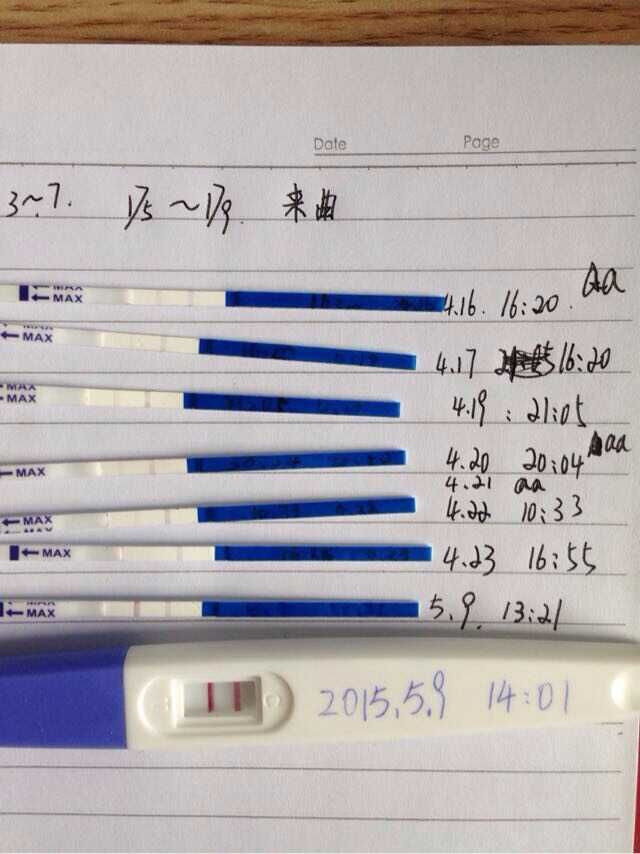 Date Page
3~7. 1/5~1/9. 来曲
MAX
← MAX 4.16. 16:20. aa
← MAX 4.17 16:20
MAX
← MAX 4.19 : 21:05
← MAX 4.20 20:04 aa
4.21 aa
← MAX 4.22 10:33
← MAX 4.23 16:55
MAX
← MAX 5.9. 13:21
C
2015.5.9 14:01